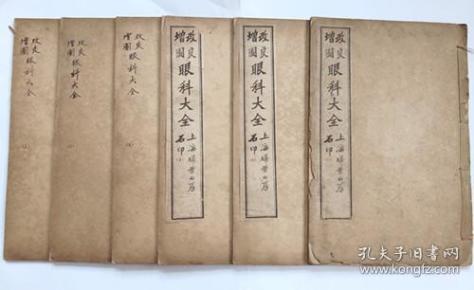 改良
增圖
眼科大全
改良
增圖
眼科大全
改良
增圖
眼科大全
改良
增圖
眼科大全
上海
石印
改良
增圖
眼科大全
上海
石印
改良
增圖
眼科大全
上海
石印
孔夫子旧书网
www.kongfz.com